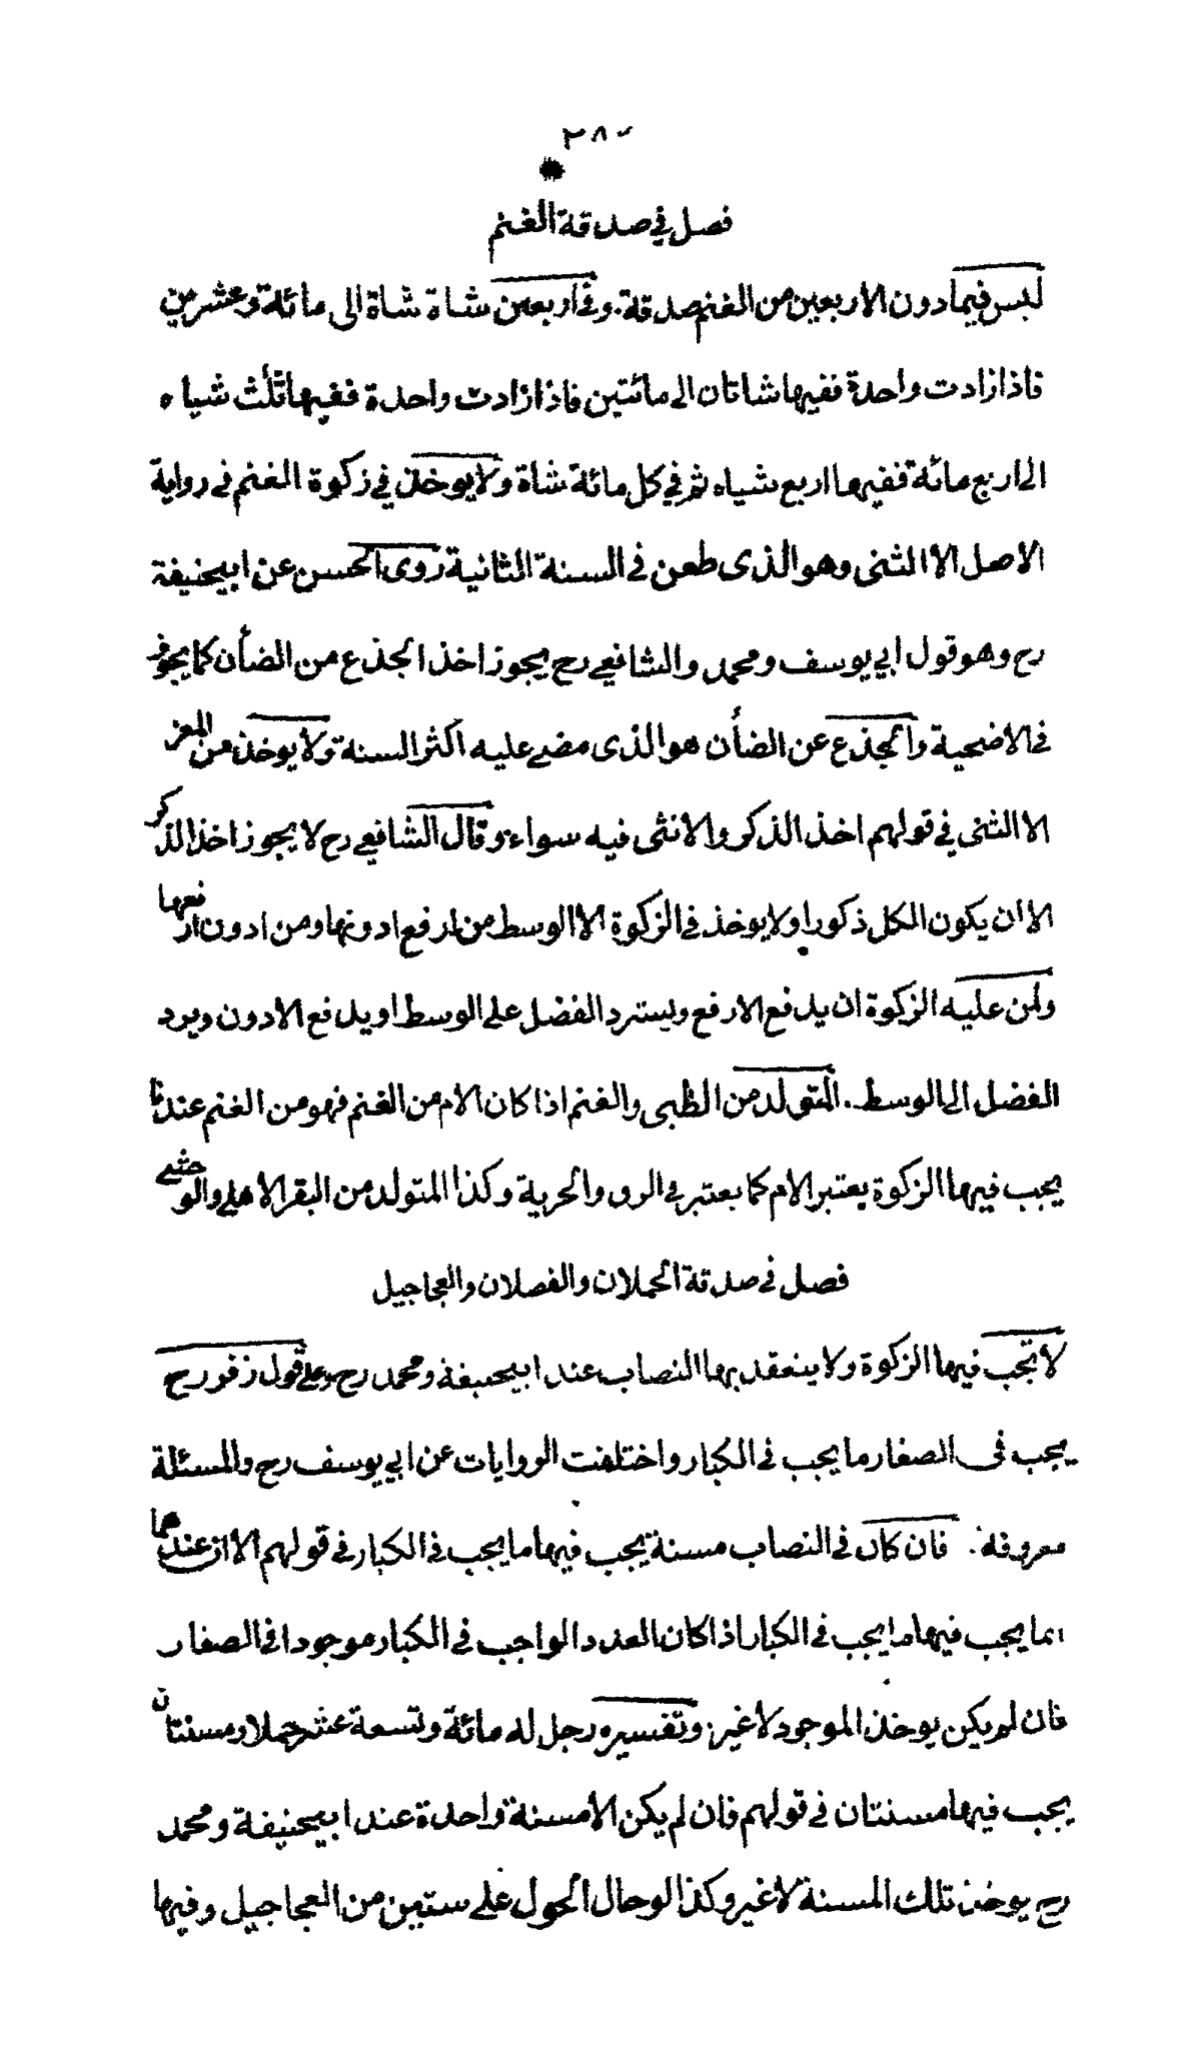 ٢٨٠
فصل في صدقة الغنم
ليس فيما دون الاربعين من الغنم صدقة . وفي اربعين شاة شاة الى مائة وعشرين
فاذا زادت واحدة ففيها شاتان الى مائتين فاذا زادت واحدة ففيها ثلث شياه
الى اربع مائة ففيها اربع شياه ثم في كل مائة شاة ولا يوخذ في زكوة الغنم في رواية
الاصل الا الثني وهو الذى طعن في السنة الثانية روى الحسن عن ابيحنيفة
رح وهو قول ابي يوسف ومحمد والشافعي رح يجوز اخذ الجذع من الضأن كما يجوز
في الاضحية والجذع عن الضأن هو الذى مضى عليه اكثر السنة ولا يوخذ من المعز
الا الثني في قولهم اخذ الذكر والانثى فيه سواء وقال الشافعي رح لا يجوز اخذ الذكر
الا ان يكون الكل ذكورا ولا يوخذ في الزكوة الا الوسط من ارفع ادونها ومن ادون ارفعها
ولمن عليه الزكوة ان يدفع الارفع ويسترد الفضل على الوسط او يدفع الادون ويرد
الفضل الى الوسط . المتولد من الظبي والغنم اذا كان الام من الغنم فهو من الغنم عندنا
يجب فيها الزكوة يعتبر الام كما يعتبر في الرق والحرية وكذا المتولد من البقر الاهلي والوحشي
فصل في صدقة الحملان والفصلان والعجاجيل
لا تجب فيها الزكوة ولا ينعقد بها النصاب عند ابيحنيفة ومحمد رح وعلى قول زفر رح
يجب في الصغار ما يجب في الكبار واختلفت الروايات عن ابي يوسف رح والمسئلة
معروفة . فان كان في النصاب مسنة يجب فيها ما يجب في الكبار في قولهم الا ان عندهما
انما يجب فيها ما يجب في الكبار اذا كان العدد الواجب في الكبار موجودا في الصغار
فان لم يكن يوخذ الموجود لا غير وتفسيره رجل له مائة وتسعة عشر حملا ومسنتان
يجب فيها مسنتان في قولهم فان لم يكن الا مسنة واحدة عند ابيحنيفة ومحمد
رح يوخذ تلك المسنة لا غير وكذا لو حال الحول على ستين من العجاجيل وفيها